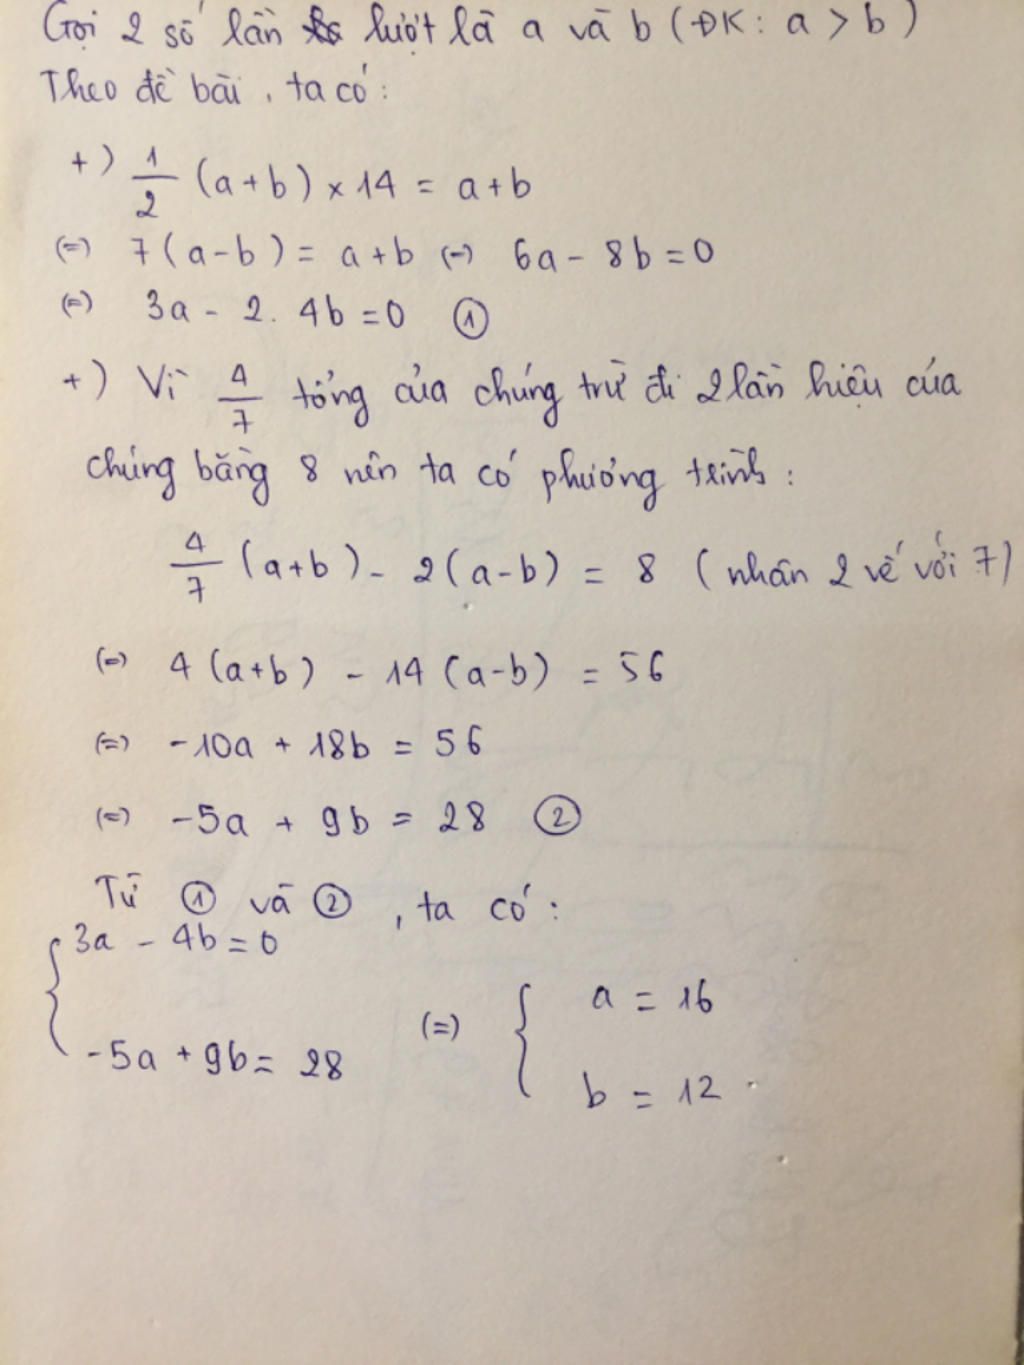 Gọi 2 số lần lượt là a và b (ĐK: a > b)
Theo đề bài, ta có:
+) 1/2 (a+b) × 14 = a+b
(=) 7(a-b) = a+b (=) 6a - 8b = 0
(=) 3a - 2. 4b = 0 ①
+) Vì 4/7 tổng của chúng trừ đi 2 lần hiệu của
chúng bằng 8 nên ta có phương trình:
4/7 (a+b) - 2(a-b) = 8 (nhân 2 vế với 7)
(=) 4(a+b) - 14(a-b) = 56
(=) -10a + 18b = 56
(=) -5a + 9b = 28 ②
Từ ① và ②, ta có:
3a - 4b = 0
-5a + 9b = 28
(=) a = 16
b = 12